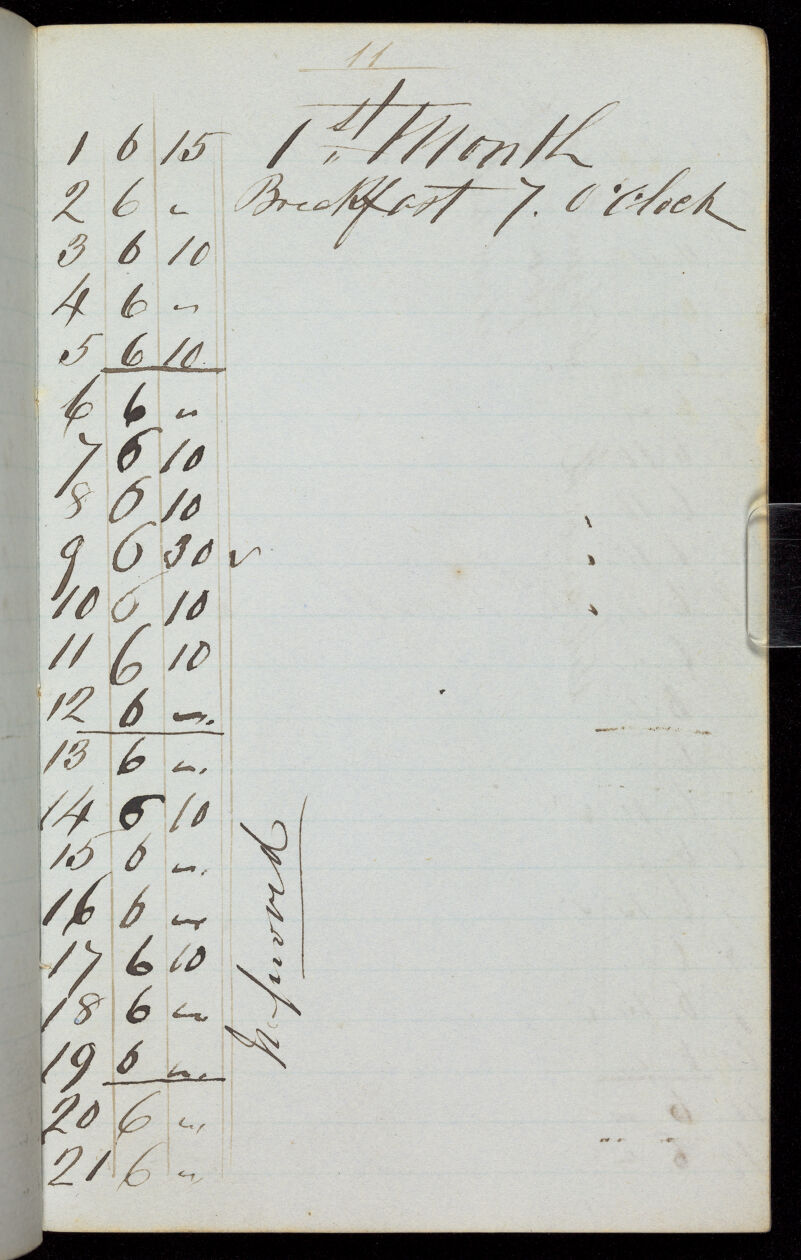 11
1 6 15 1st Month
2 6 " Breakfast 7. O'Clock
3 6 10
4 6 "
5 6 10
6 6 "
7 6 10
8 6 10
9 6 30 v
10 6 10
11 6 10
12 6 ".
13 6 ".
14 6 10
15 6 ".
16 6 "
17 6 10
18 6 "
19 6 ".
20 6 "
21 6 "